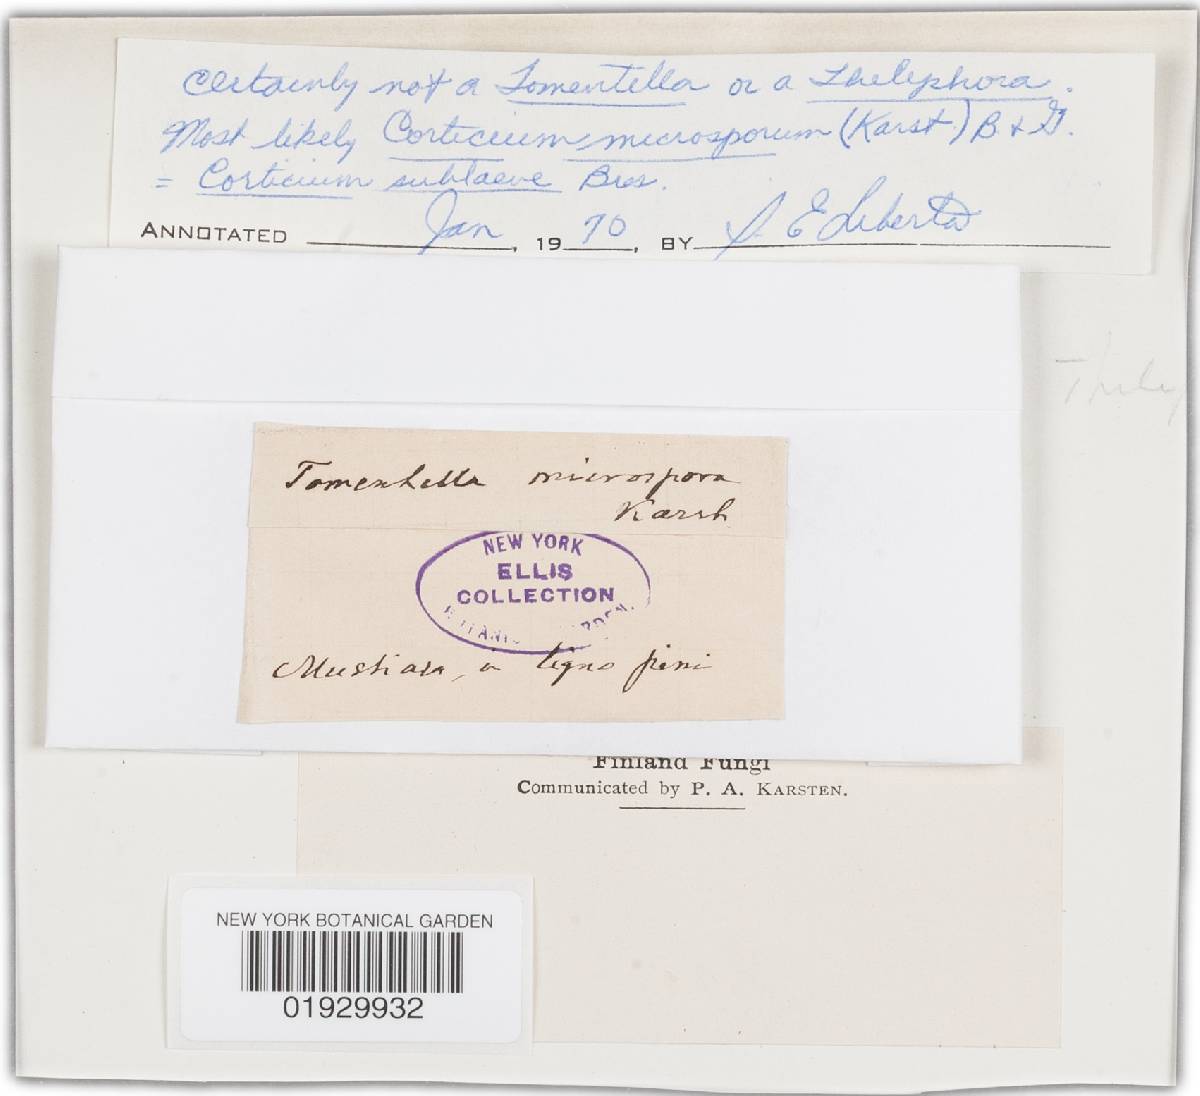 Certainly not a Tomentella or a Thelephora.
Most likely Corticium microsporum (Karst.) B & G.
= Corticium sublaeve Bres.
ANNOTATED Jan, 1970, BY A E Liberta
Tomentella microspora
Karst
NEW YORK
ELLIS
COLLECTION
BOTANICAL GARDEN.
Mustiala, in ligno pini
Finland Fungi
Communicated by P. A. KARSTEN.
NEW YORK BOTANICAL GARDEN
01929932